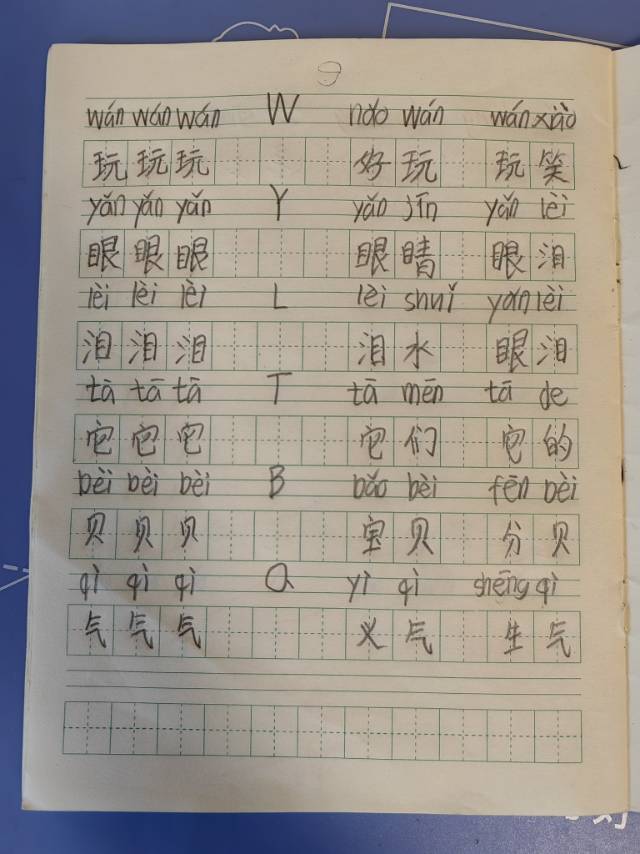 9
wán wán wán W nǎo wán wán xiào
玩 玩 玩 好 玩 玩 笑
yǎn yǎn yǎn Y yǎn jīn yǎn lèi
眼 眼 眼 眼 睛 眼 泪
lèi lèi lèi L lèi shuǐ yǎn lèi
泪 泪 泪 泪 水 眼 泪
tā tā tā T tā mēn tā de
它 它 它 它 们 它 的
bèi bèi bèi B bǎo bèi fēn bèi
贝 贝 贝 宝 贝 分 贝
qì qì qì Q yì qì shēng qì
气 气 气 义 气 生 气